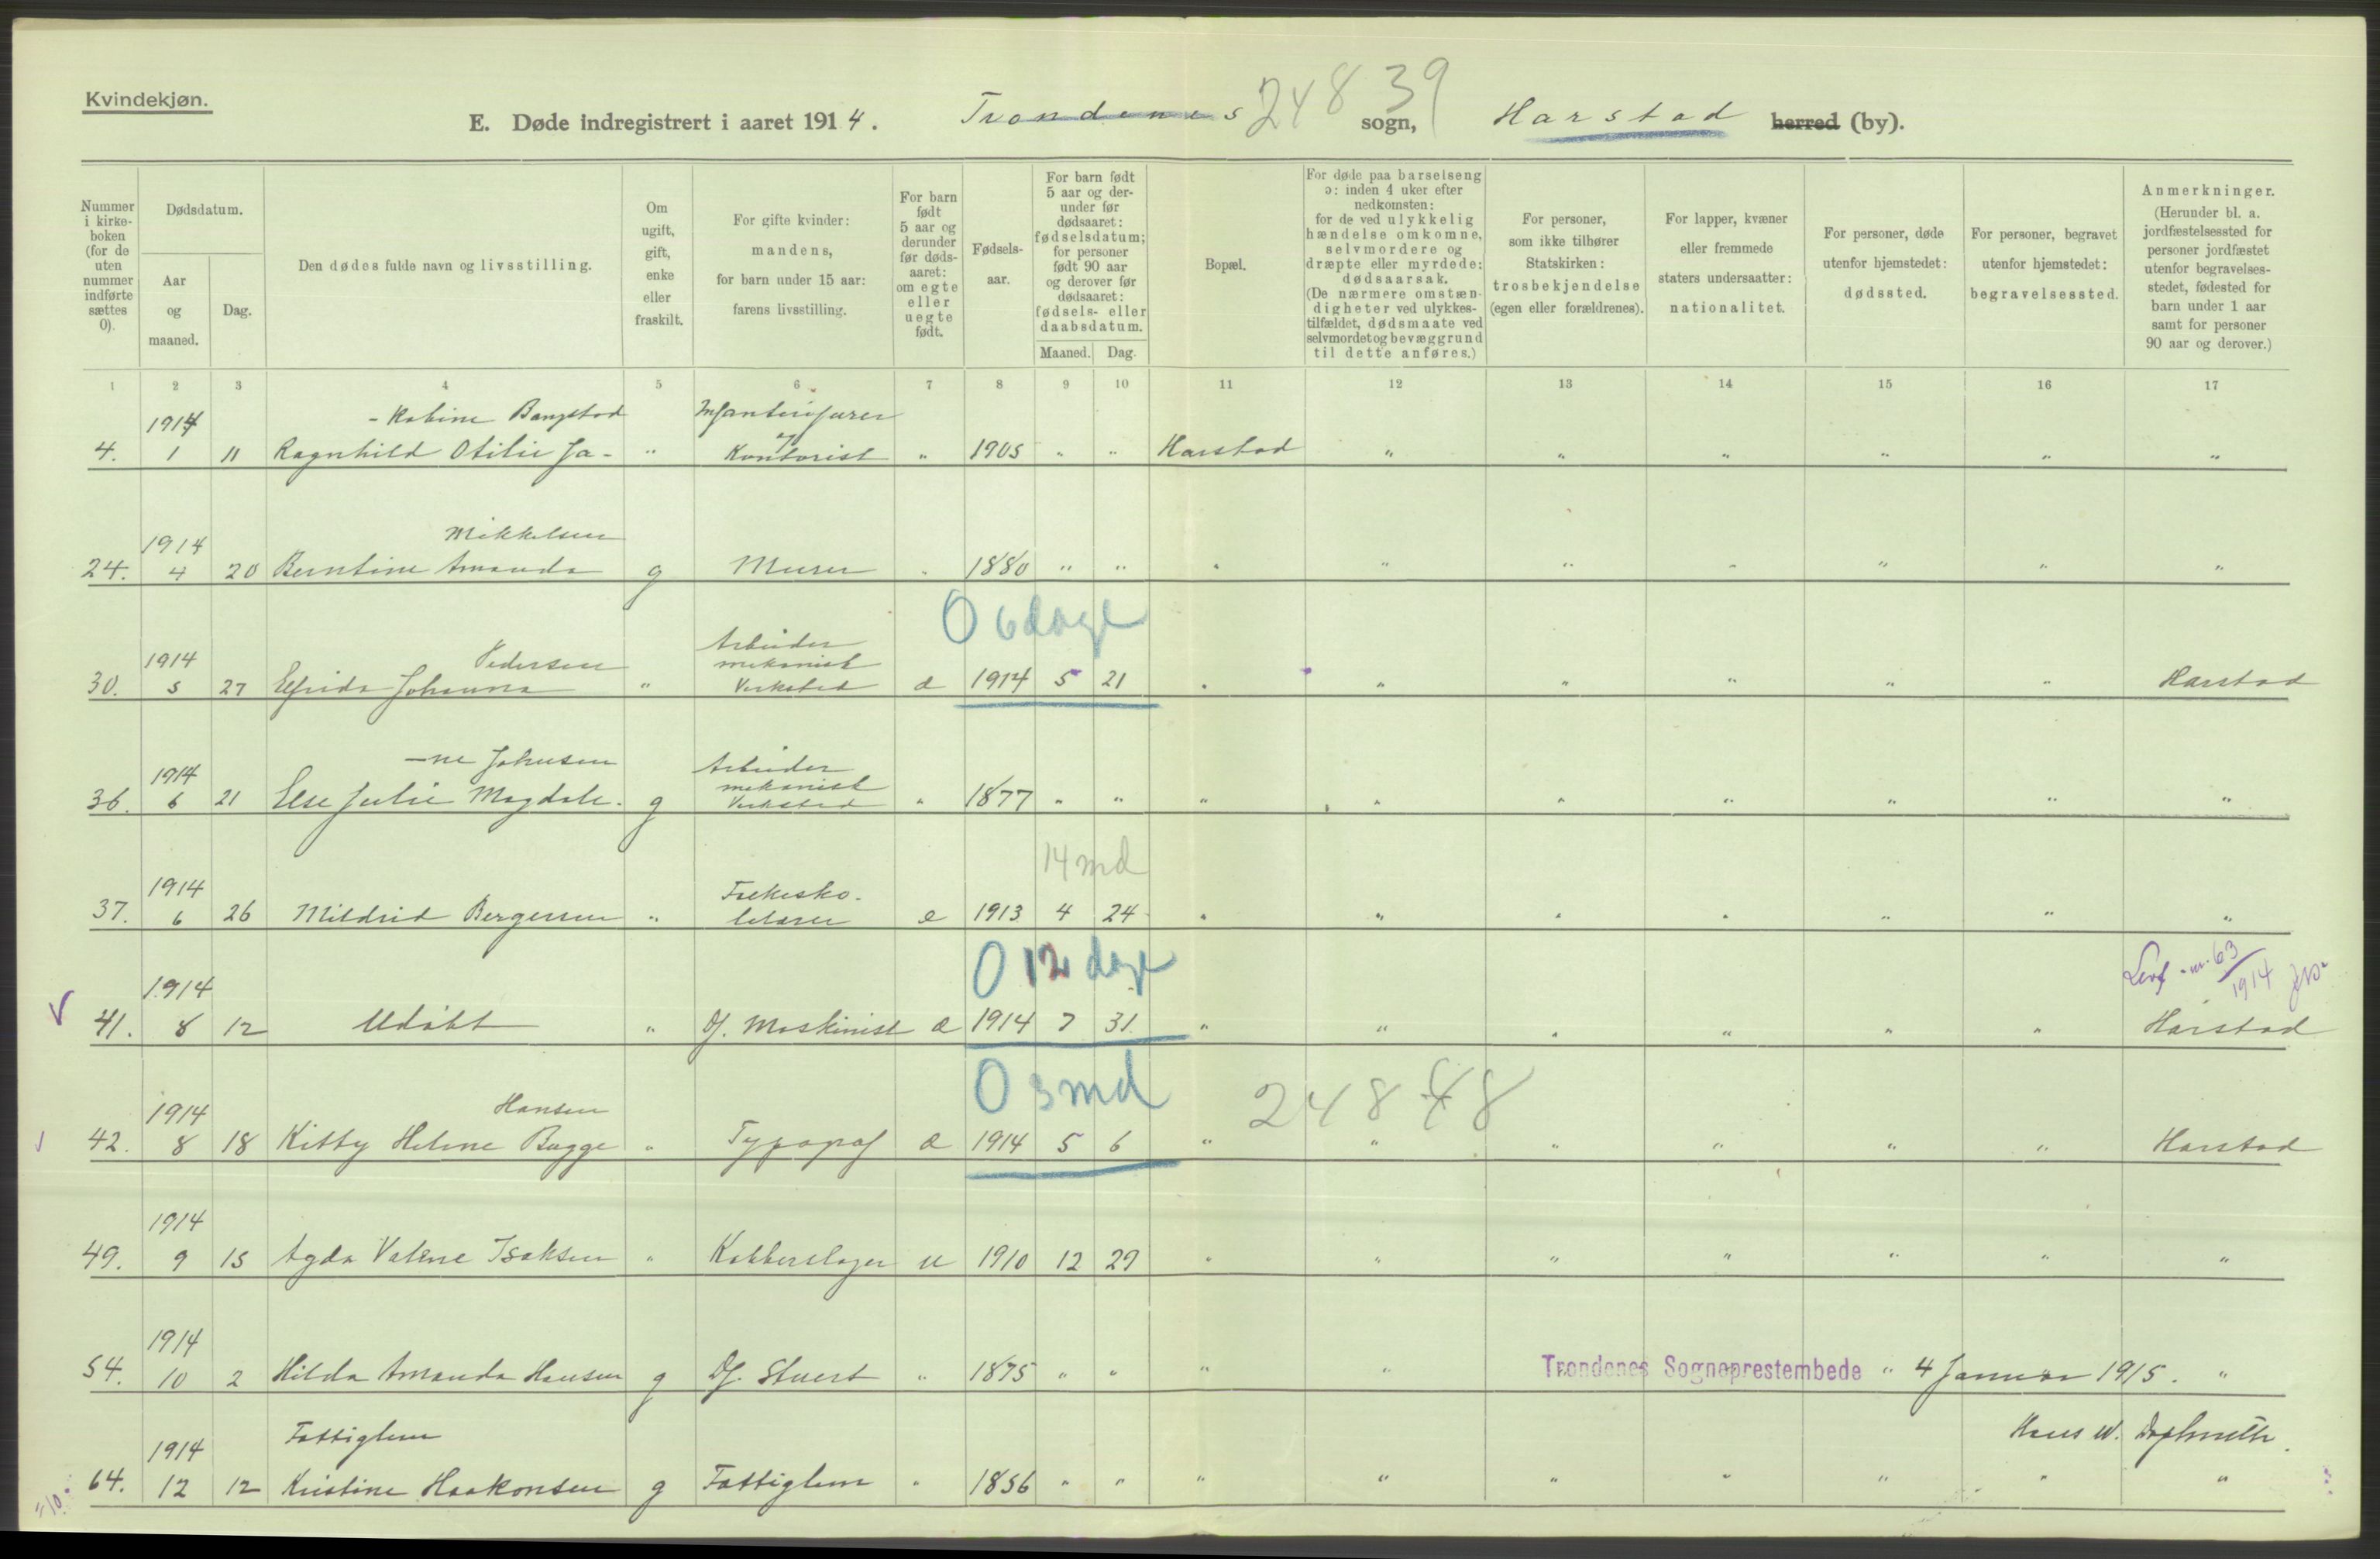 Kvindekjøn.
E. Døde indregistrert i aaret 1914. Trondenes sogn, Harstad herred (by).
24839
Nummer i kirkeboken (for de uten nummer indførte sættes 0).
Dødsdatum.
Aar og maaned.
Dag.
Den dødes fulde navn og livsstilling.
Om ugift, gift, enke eller fraskilt.
For gifte kvinder: mandens, for barn under 15 aar: farens livsstilling.
For barn født 5 aar og derunder før dødsaaret: om egte eller uegte født.
Fødselsaar.
For barn født 5 aar og derunder før dødsaaret: fødselsdatum; for personer født 90 aar og derover før dødsaaret: fødsels- eller daabsdatum.
Maaned. Dag.
Bopæl.
For døde paa barselseng ɔ: inden 4 uker efter nedkomsten: for de ved ulykkelig hændelse omkomne, selvmordere og dræpte eller myrdede: dødsaarsak. (De nærmere omstændigheter ved ulykkestilfældet, dødsmaate ved selvmordet og bevæggrund til dette anføres.)
For personer, som ikke tilhører Statskirken: trosbekjendelse (egen eller forældrenes).
For lapper, kvæner eller fremmede staters undersaatter: nationalitet.
For personer, døde utenfor hjemstedet: dødssted.
For personer, begravet utenfor hjemstedet: begravelsessted.
Anmerkninger. (Herunder bl. a. jordfæstelsessted for personer jordfæstet utenfor begravelsesstedet, fødested for barn under 1 aar samt for personer 90 aar og derover.)
1 2 3 4 5 6 7 8 9 10 11 12 13 14 15 16 17
1914 - kobine Bangstad Infanterifurer og
4. 1 11 Ragnhild Otilie Ja- " Kontorist " 1905 " " Harstad " " " " " "
1914 Mikkelsen
24. 4 20 Berntine Amanda g Murer " 1880 " " " " " " " " "
0 6 dage
1914 Pedersen Arbeider mekanisk
30. 5 27 Elfrida Johanna " Verksted e 1914 5 21 " " " " " " Harstad
1914 -ne Johnsen Arbeider mekanisk
36. 6 21 Else Julie Magdale- g Verksted " 1877 " " " " " " " " "
14 md
1914 Folkesko-
37. 6 26 Mildrid Bergersen " lelærer e 1913 4 24 " " " " " " "
0 12 dage
63/1914
1914
V 41. 8 12 Udøbt " Df. Maskinist e 1914 7 31 " " " " " " Harstad
0 3 md 24848
1914 Hansen
42. 8 18 Kitty Helene Bugge " Typograf e 1914 5 6 " " " " " " Harstad
1914
49. 9 15 Agda Valene Isaksen " Kobberslager u 1910 12 29 " " " " " " "
1914
54. 10 2 Hilda Amanda Hansen g Df. Stuert " 1875 " " " " Trondenes Sogneprestembede " 4 Januar 1915. "
1914 Fattiglem Hans W.
64. 12 12 Kristine Haakonsen g Fattiglem " 1856 " " " " " " " " "
"10.